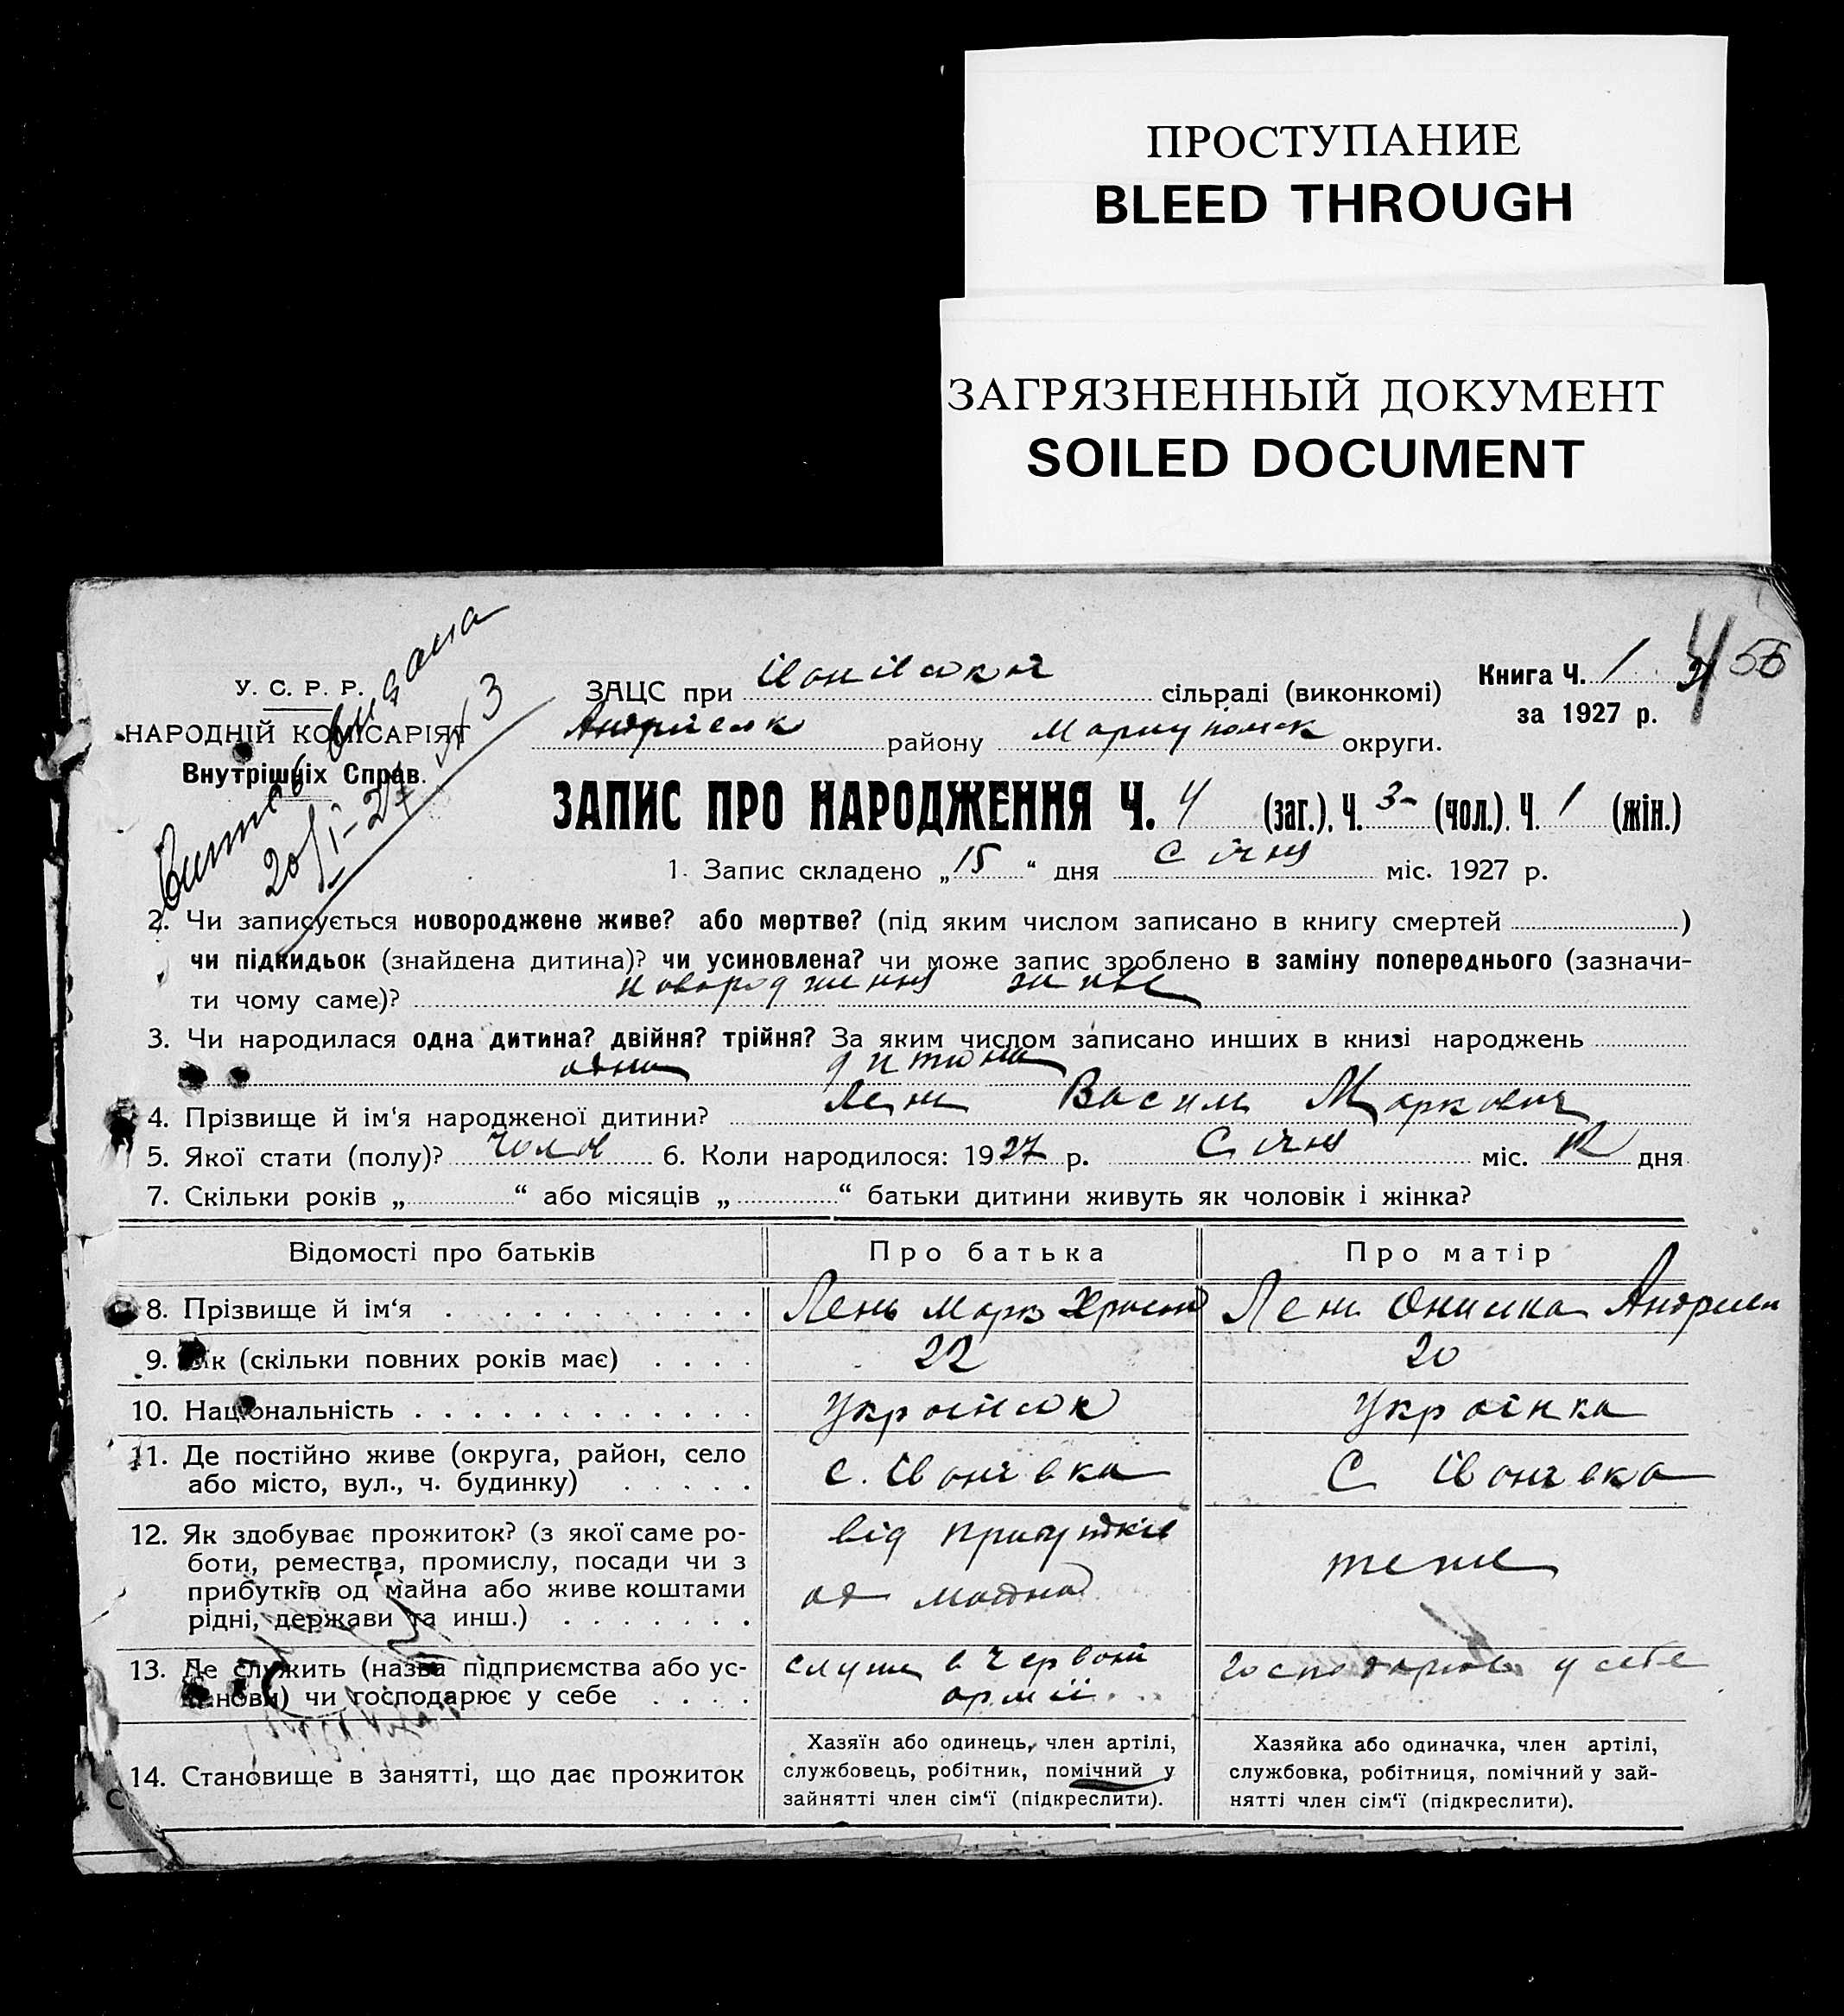 ПРОСТУПАНИЕ
BLEED THROUGH
ЗАГРЯЗНЕННЫЙ ДОКУМЕНТ
SOILED DOCUMENT
У. С. Р. Р.
НАРОДНІЙ КОМІСАРІЯТ
Внутрішніх Справ.
Витяг видана
20/I-27 № 3
ЗАЦС при Іванівській сільраді (виконкомі)
Андріевск району Маріупольск округи.
Книга Ч. 1
за 1927 р.
ЗАПИС ПРО НАРОДЖЕННЯ Ч. 4 (заг.). Ч. 3- (чол.). Ч. 1 (жін.)
1. Запис складено „15“ дня Січня міс. 1927 р.
2. Чи записується новороджене живе? або мертве? (під яким числом записано в книгу смертей )
чи підкидьок (знайдена дитина)? чи усиновлена? чи може запис зроблено в заміну попереднього (зазначи-
ти чому саме)? новородження живе
3. Чи народилася одна дитина? двійня? трійня? За яким числом записано инших в книзі народжень
одна дитина
4. Прізвище й ім‘я народженої дитини? Лень Василь Маркович
5. Якої стати (полу)? чолов 6. Коли народилося: 1927 р. Січня міс. 12 дня
7. Скільки років „ “ або місяців „ “ батьки дитини живуть як чоловік і жінка?
Відомості про батьків Про батька Про матір
8. Прізвище й ім‘я Лень Марк Хрисан Лень Онилка Андріев
9. Вік (скільки повних років має) 22 20
10. Національність Украінок Украінка
11. Де постійно живе (округа, район, село
або місто, вул., ч. будинку) с. Іванівка С Іванівка
12. Як здобуває прожиток? (з якої саме ро-
боти, ремества, промислу, посади чи з
прибутків од майна або живе коштами
рідні, держави та инш.) від прибутків
од майна теж
13. Де служить (назва підприємства або ус-
танови) чи господарює у себе служ в Червоні
армії. господарює у себе
14. Становище в занятті, що дає прожиток
Хазяїн або одинець, член артілі,
службовець, робітник, помічний у
зайнятті член сім‘ї (підкреслити).
Хазяйка або одиначка, член артілі,
службовка, робітниця, помічний у зай-
нятті член сім‘ї (підкреслити).